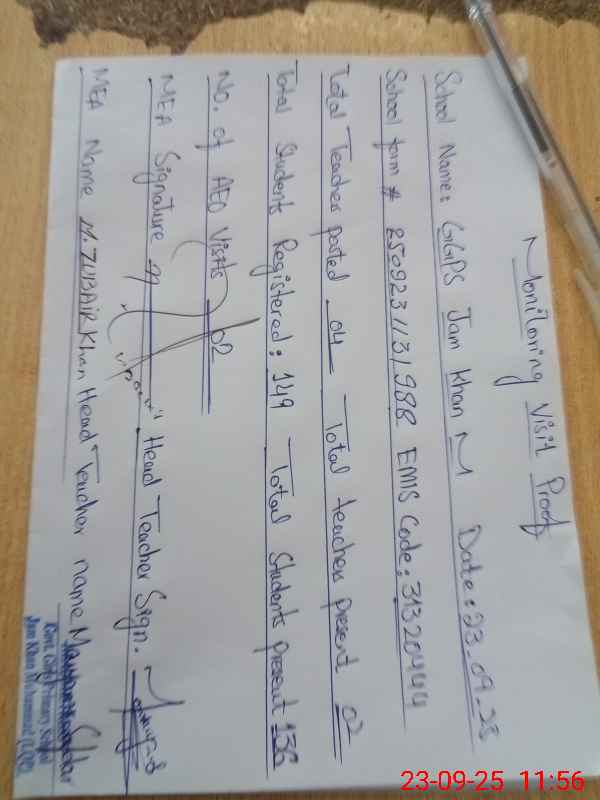 Monitoring Visit Proof
School Name: GGPS Jam Khan M Date: 23.09.25
School form # 250923113/988 EMIS Code: 31320444
Total Teachers posted 04 Total teachers present 02
Total Students Registered: 149 Total Students present 136
No. of AEO Visits 02
MEA Signature Head Teacher Sign.
MEA Name M. ZUBAIR Khan Head Teacher name
Govt. Girls Primary School
Jam Khan Muhammad
23-09-25 11:56